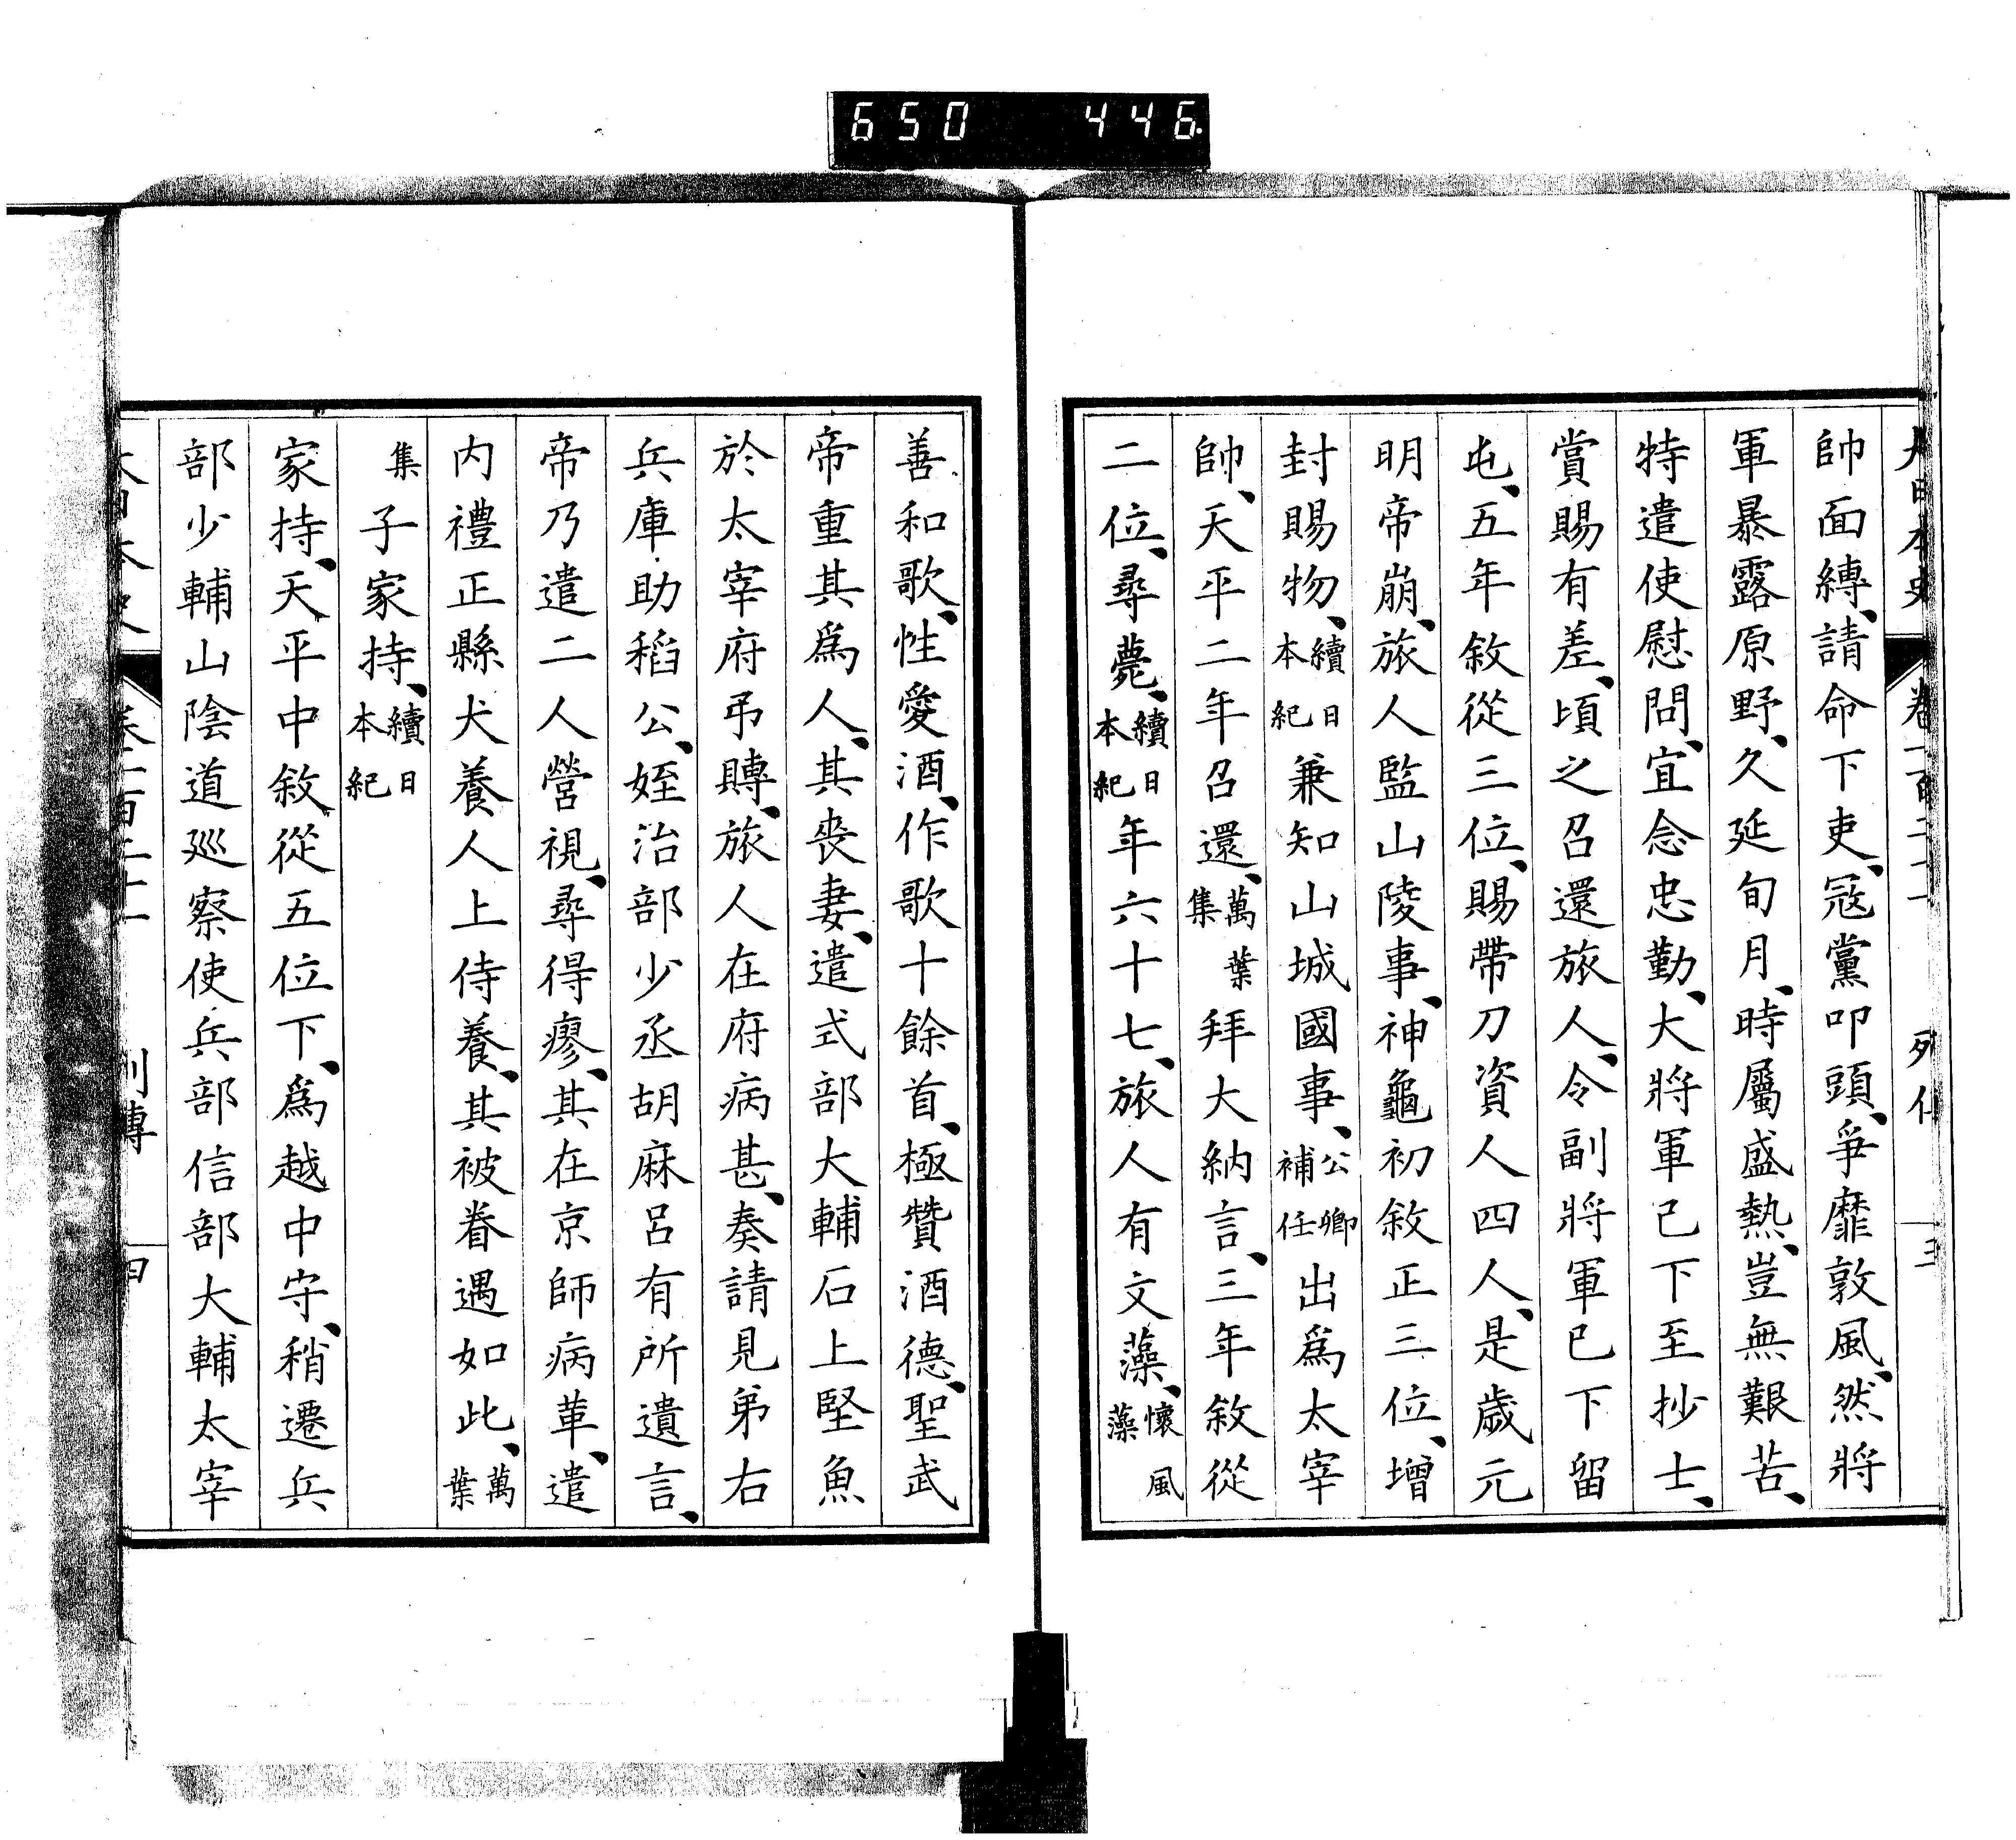 650 446
帥面縳、請命下吏、冦黨叩頭、爭靡敦風、然將
軍暴露原野、久延旬月、時屬盛熱、豈無艱苦、
特遣使慰問、宜念忠勤、大將軍已下至抄士、
賞賜有差、頃之召還旅人、令副將軍已下留
屯、五年敘從三位、賜帶刀資人四人、是歲元
明帝崩、旅人監山陵事、神龜初敘正三位、增
封賜物、續日本紀兼知山城國事、公卿補任出爲太宰
帥、天平二年召還、萬葉集拜大納言、三年敘從
二位、尋薨、續日本紀年六十七、旅人有文藻、懷風藻
善和歌、性愛酒、作歌十餘首、極贊酒德、聖武
帝重其爲人、其喪妻、遣式部大輔石上堅魚
於太宰府弔賻、旅人在府病甚、奏請見弟右
兵庫助稻公、姪治部少丞胡麻呂有所遺言、
帝乃遣二人營視、尋得瘳、其在京師病革、遣
内禮正縣犬養人上侍養、其被眷遇如此、萬葉
集子家持、續日本紀
家持、天平中敘從五位下、爲越中守、稍遷兵
部少輔山陰道巡察使兵部信部大輔太宰